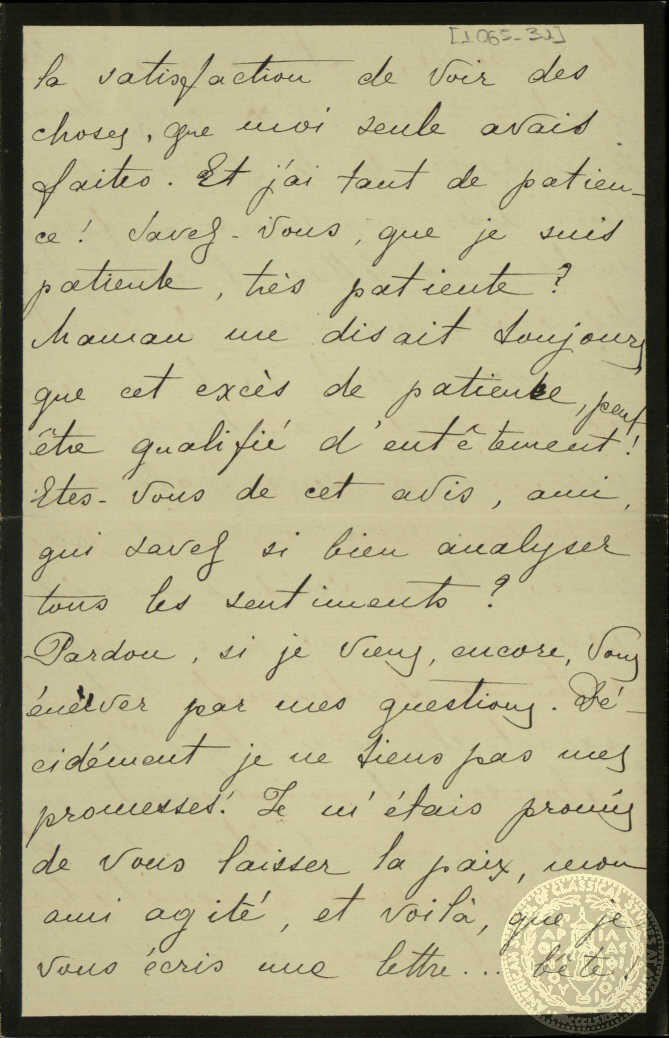 [1065-32]
la satisfaction de voir des
choses, que moi seule avais
faites. Et j'ai tant de patien-
ce! Savez-vous, que je suis
patiente, très patiente?
Maman me disait toujours
que cet excès de patience, peut
être qualifié d'entêtement!
Etes-vous de cet avis, ami,
qui savez si bien analyser
tous les sentiments?
Pardon, si je viens, encore, vous
énerver par mes questions. Dé-
cidément je ne tiens pas mes
promesses! Je m'étais promis
de vous laisser la paix, mon
ami agité, et voilà, que je
vous écris une lettre... bête!